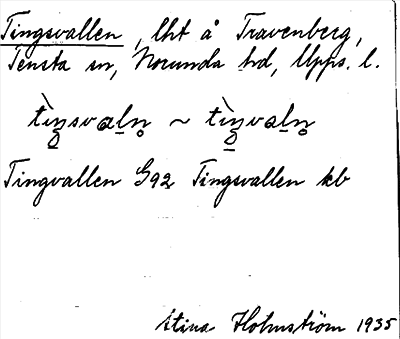 Tingsvallen, lht å Travenberg,
Tensta sn, Norunda hd, Upps. l.
tìŋsvaln̥ ~ tìŋvaln̥
Tingvallen G92 Tingsvallen kb
Stina Holmström 1935